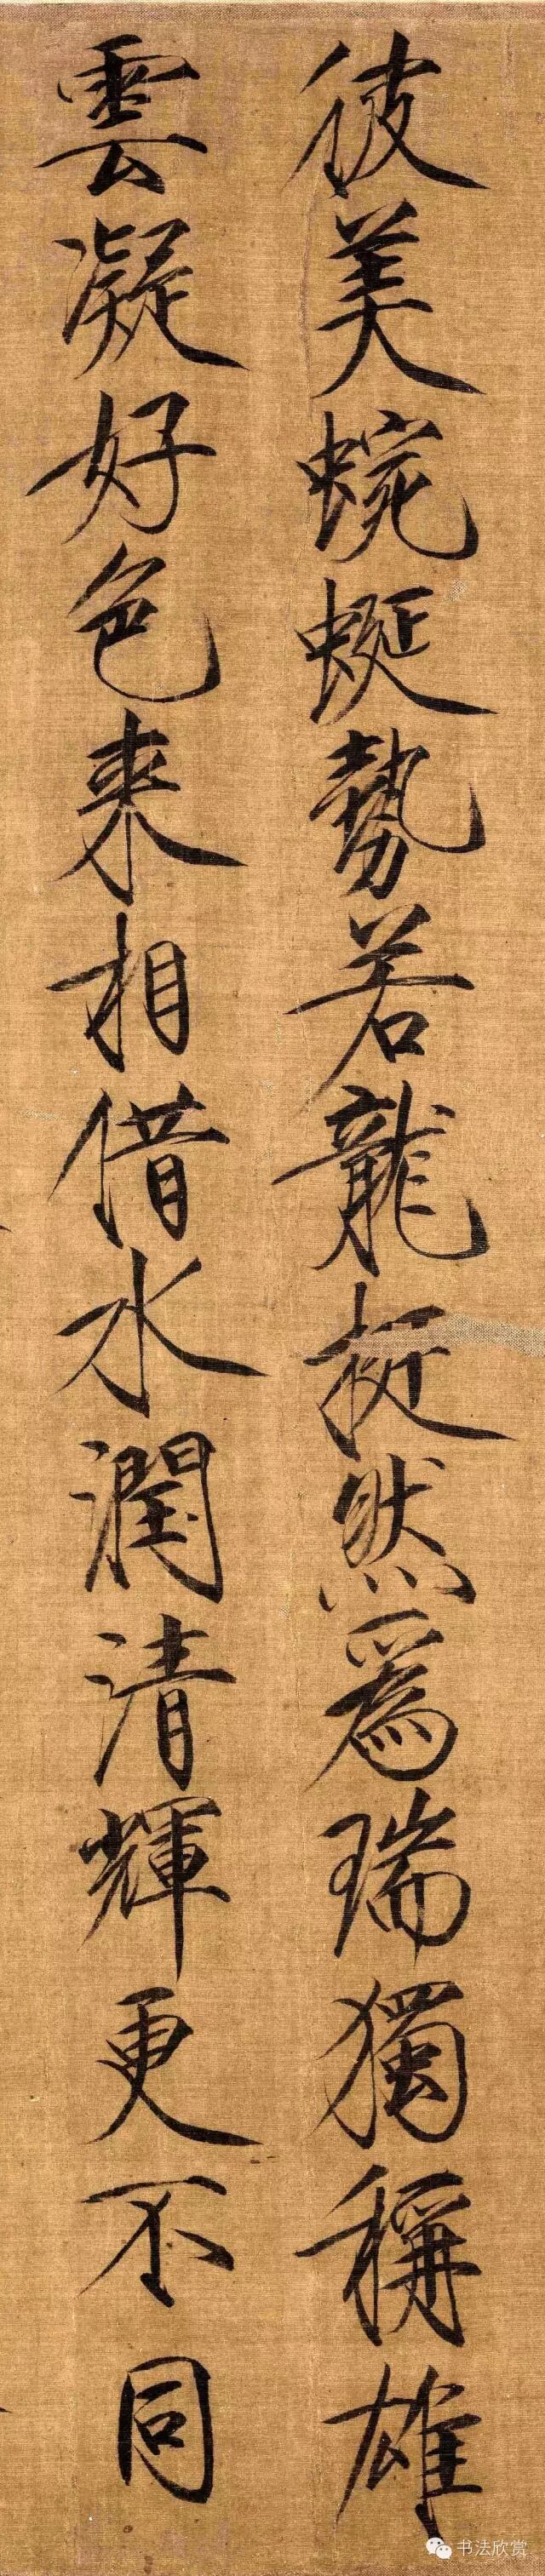 彼美蜿蜒勢若龍挺然為瑞獨稱雄
雲凝好色來相借水潤清輝更不同
书法欣赏